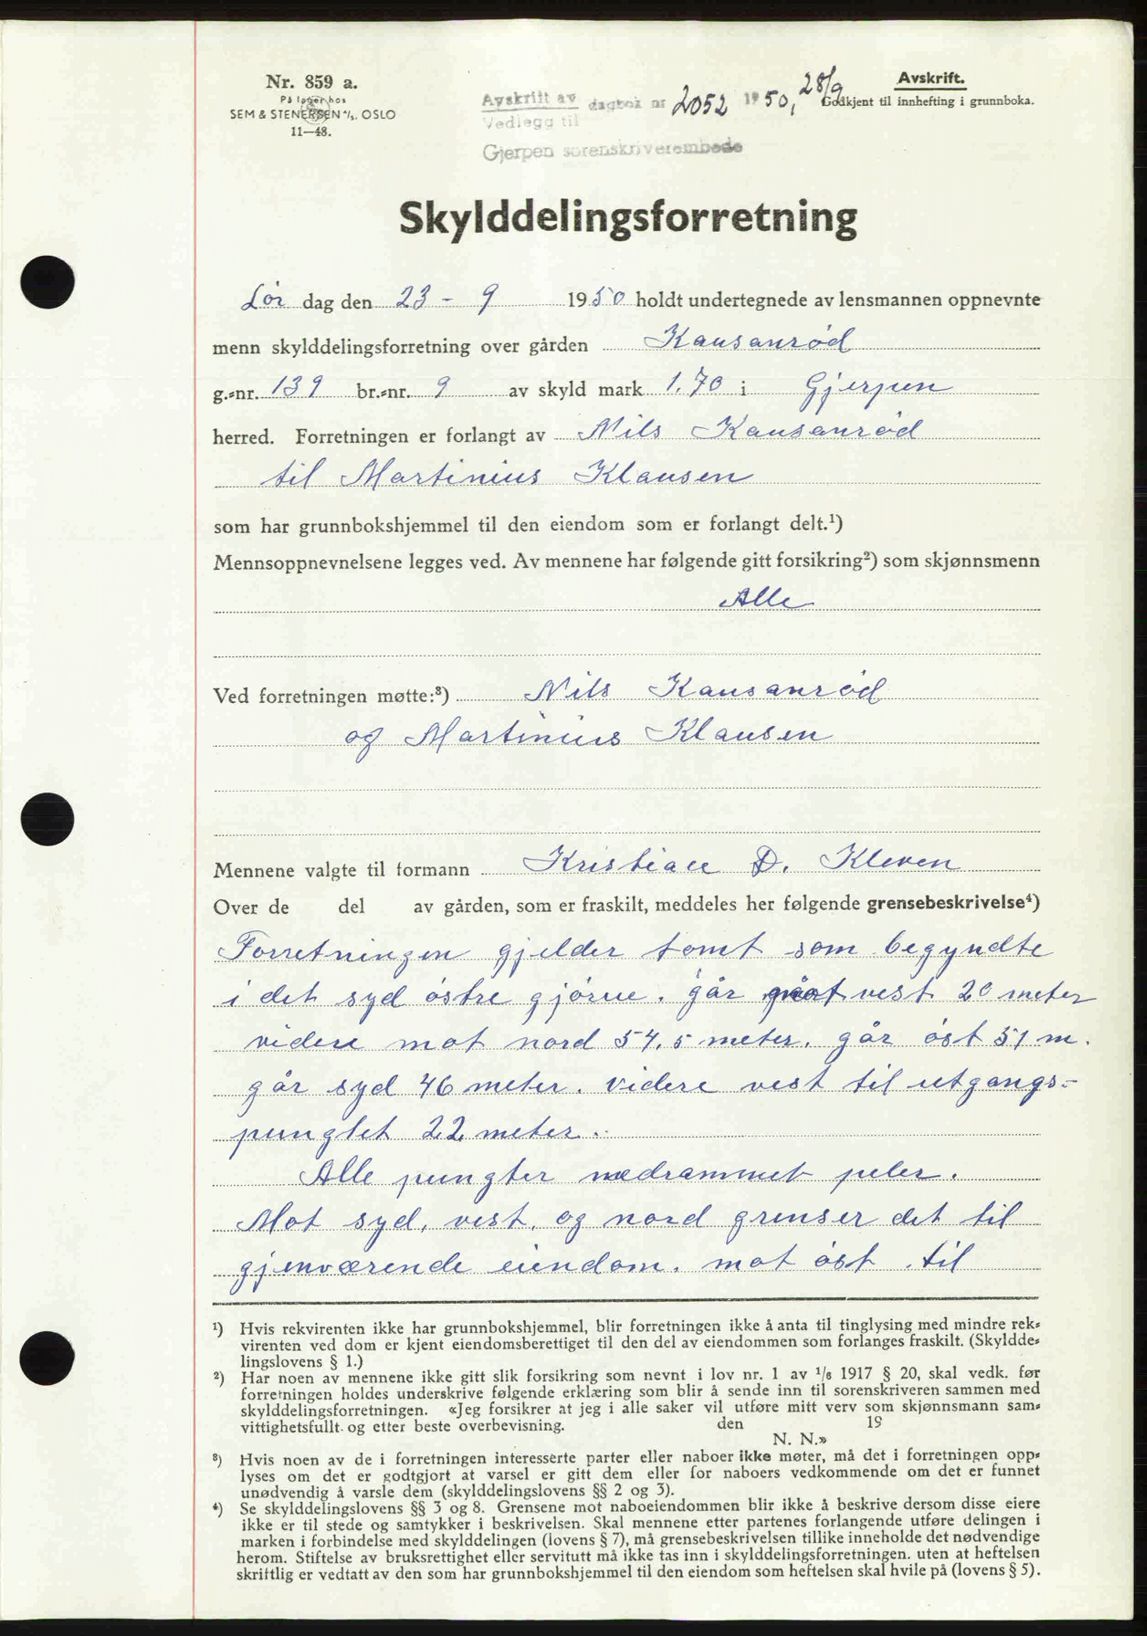 Nr. 859 a.
På lager hos
SEM & STENERSEN A/S. OSLO
11—48.
Avskrift av dagbok nr 2052 1950, 28/9
Vedlegg til
Gjerpen sorenskriverembede
Avskrift.
Godkjent til innhefting i grunnboka.
Skylddelingsforretning
Lør dag den 23 - 9 1950 holdt undertegnede av lensmannen oppnevnte
menn skylddelingsforretning over gården Kausanrød
g.-nr. 139 br.-nr. 9 av skyld mark 1.70 i Gjerpen
herred. Forretningen er forlangt av Nils Kausanrød
til Martinius Klausen
som har grunnbokshjemmel til den eiendom som er forlangt delt.¹)
Mennsoppnevnelsene legges ved. Av mennene har følgende gitt forsikring²) som skjønnsmenn
Alle
Ved forretningen møtte:³) Nils Kausanrød
og Martinius Klausen
Mennene valgte til formann Kristian D. Kleven
Over de del av gården, som er fraskilt, meddeles her følgende grensebeskrivelse⁴)
Forretningen gjelder tomt som begyndte
i det syd østre hjørne. går mot vest 20 meter
videre mot nord 54,5 meter. går øst 51 m.
går syd 46 meter. videre vest til utgangs-
pungtet 22 meter.
Alle pungter nedrammet peler.
Mot syd, vest, og nord grenser det til
gjenværende eiendom. mot øst til
¹) Hvis rekvirenten ikke har grunnbokshjemmel, blir forretningen ikke å anta til tinglysing med mindre rek-
virenten ved dom er kjent eiendomsberettiget til den del av eiendommen som forlanges fraskilt. (Skyldde-
lingslovens § 1.)
²) Har noen av mennene ikke gitt slik forsikring som nevnt i lov nr. 1 av 1/6 1917 § 20, skal vedk. før
forretningen holdes underskrive følgende erklæring som blir å sende inn til sorenskriveren sammen med
skylddelingsforretningen. «Jeg forsikrer at jeg i alle saker vil utføre mitt verv som skjønnsmann sam-
vittighetsfullt og etter beste overbevisning. den 19
N. N.»
³) Hvis noen av de i forretningen interesserte parter eller naboer ikke møter, må det i forretningen opp-
lyses om det er godtgjort at varsel er gitt dem eller for naboers vedkommende om det er funnet
unødvendig å varsle dem (skylddelingslovens §§ 2 og 3).
⁴) Se skylddelingslovens §§ 3 og 8. Grensene mot naboeiendommen blir ikke å beskrive dersom disse eiere
ikke er til stede og samtykker i beskrivelsen. Skal mennene etter partenes forlangende utføre delingen i
marken i forbindelse med skylddelingen (lovens § 7), må grensebeskrivelsen tillike inneholde det nødvendige
herom. Stiftelse av bruksrettighet eller servitutt må ikke tas inn i skylddelingsforretningen. uten at heftelsen
skriftlig er vedtatt av den som har grunnbokshjemmel til den eiendom som heftelsen skal hvile på (lovens § 5).